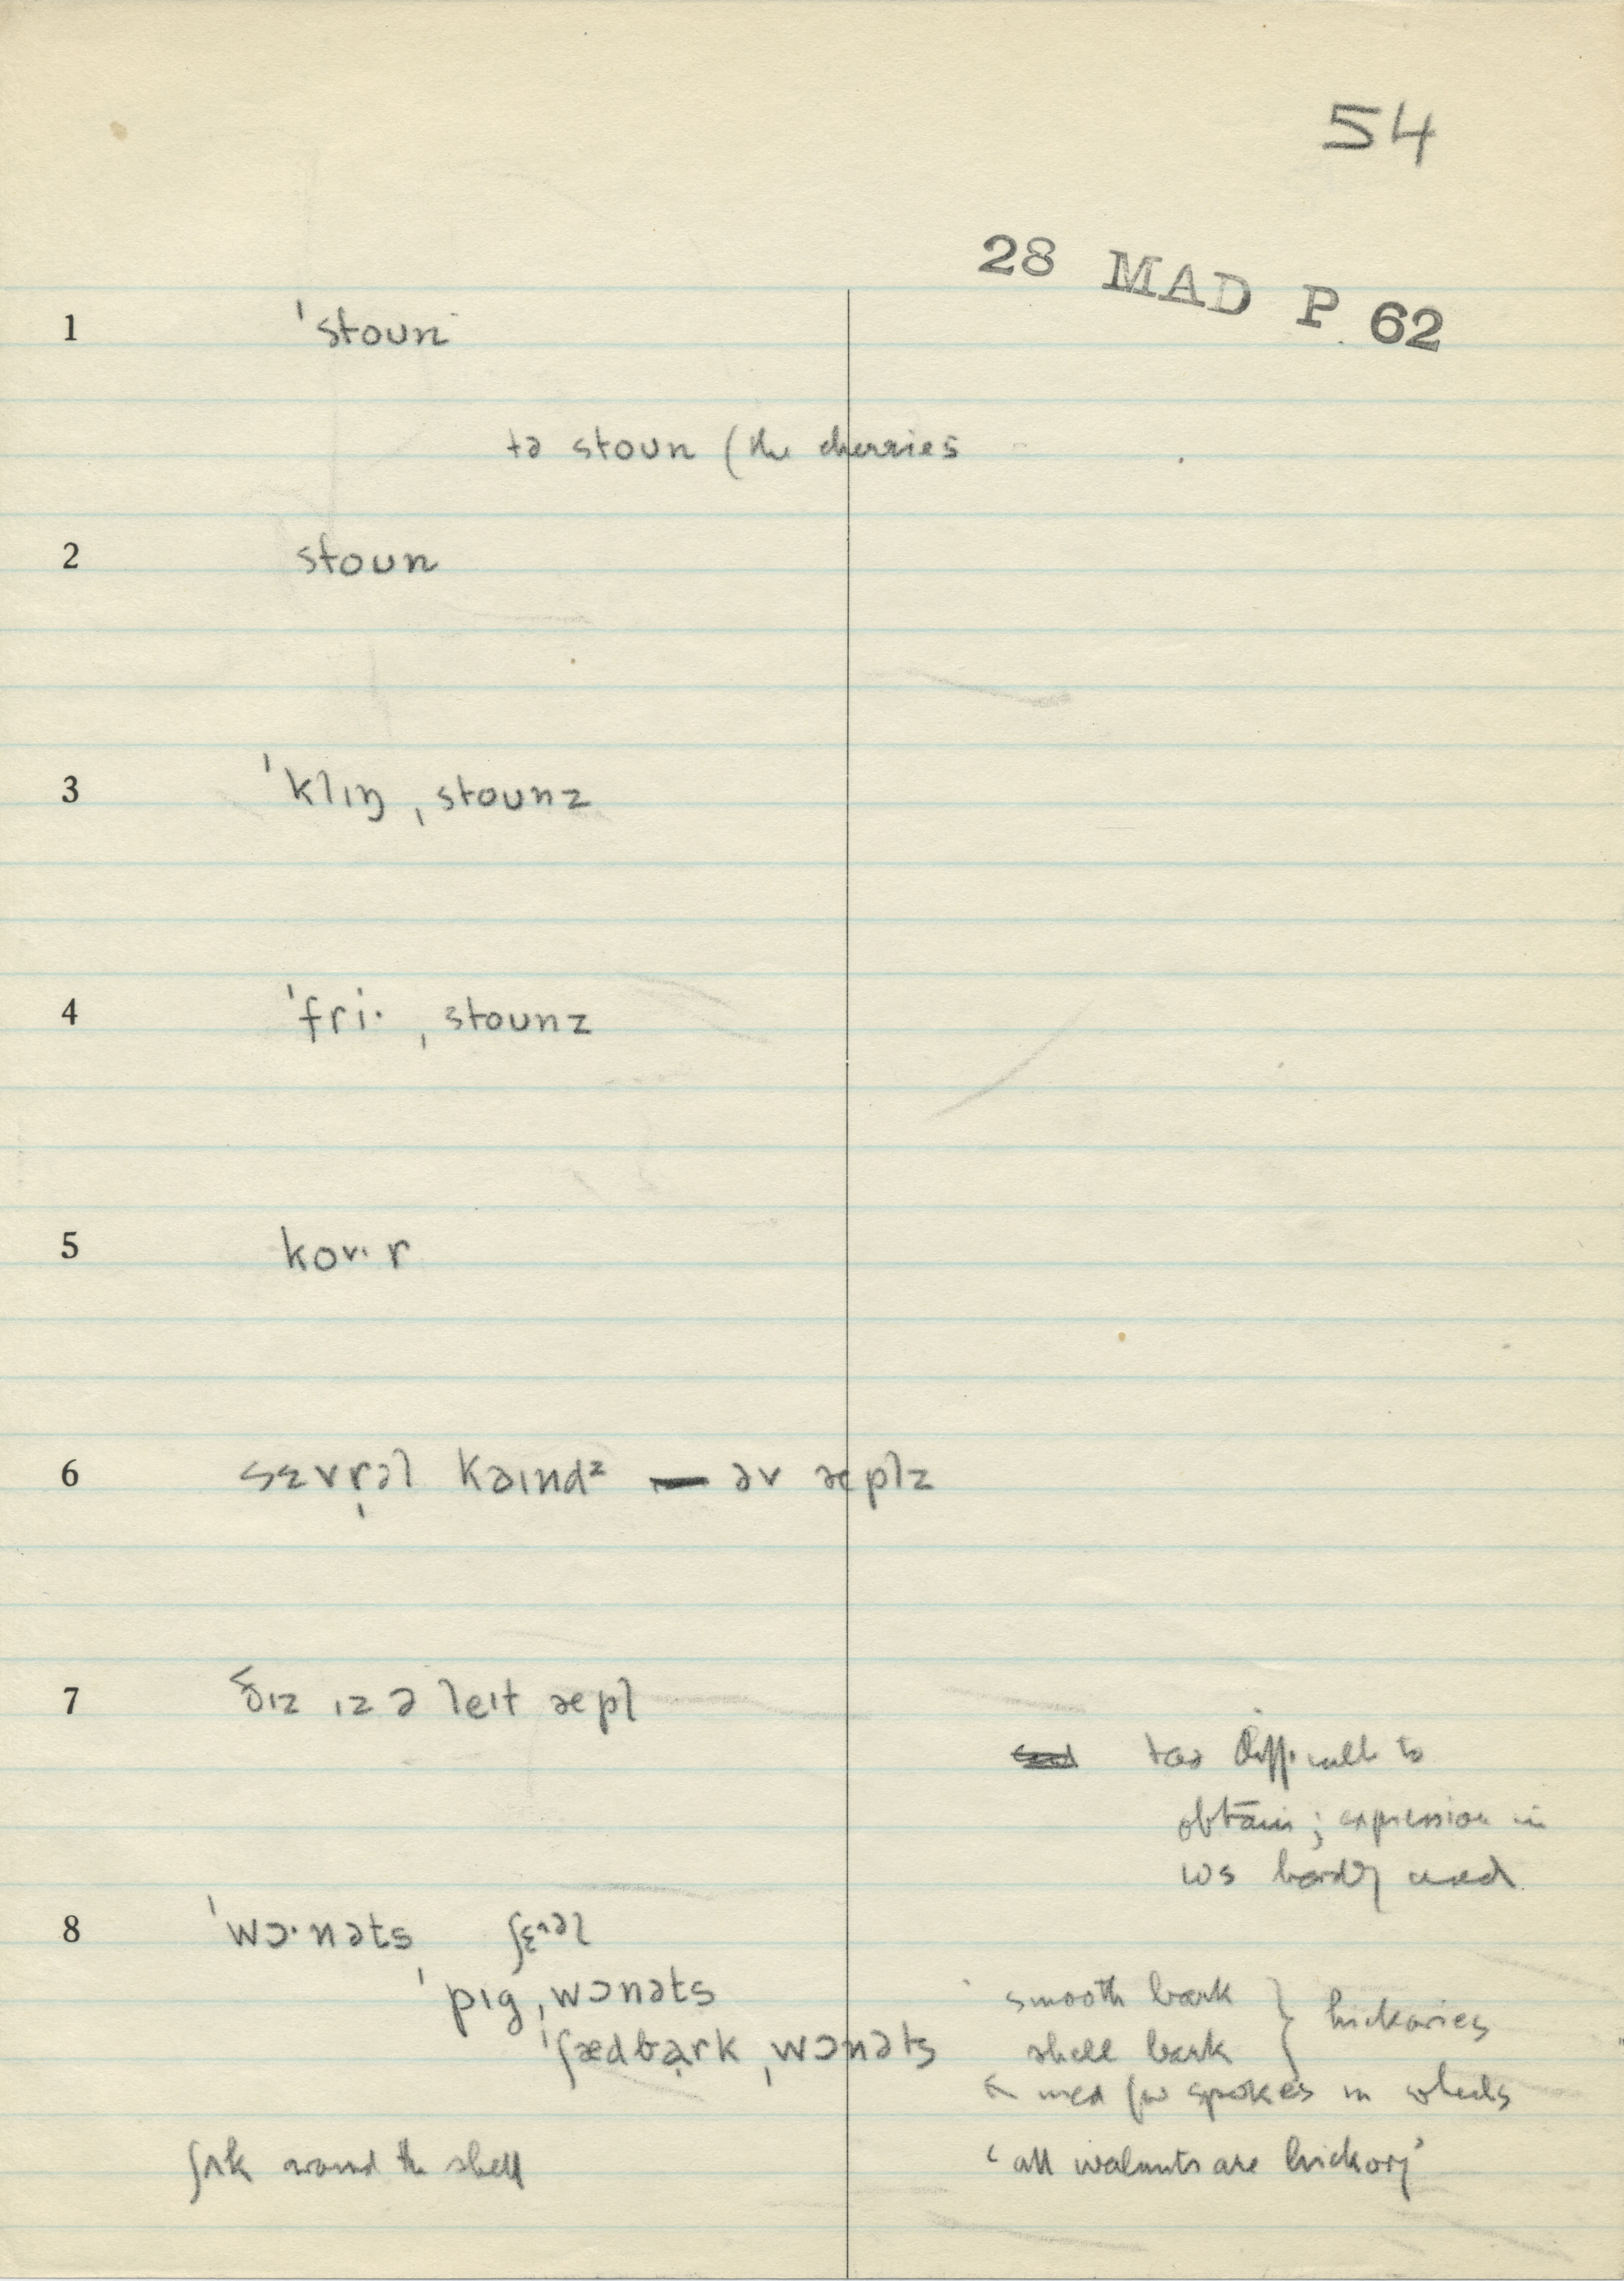 54
28 MAD P 62
1 ˈstoun
tə stoun (the cherries
2 stoun
3 ˈklɪŋ ˌstounz
4 ˈfri· ˌstounz
5
6 sɛvr̩əl kəɪndᶻ — əv æplz
7 ðɪz ɪz ə leɪt æpl
too difficult to
obtain; expression in
ws hardly used
8 ˈwɔ·nəts ʃɛᶺəl
ˈpɪg ˌwɔnəts smooth bark } hickories
ˈʃædbark ˌwɔnəts shell bark
used for spokes in wheels
ʃʌk around the shell ‘all walnuts are hickory’